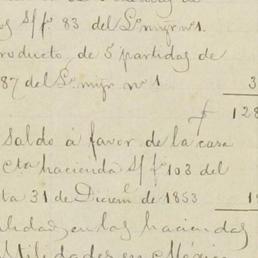 s/ fº 83 del Lº myr nº 1.
producto de 5 partidas de
87 del Lº myr nº 1 3
128
saldo á favor de la casa
cta hacienda s/ fº 103 del
ta 31 de Diciem.e de 1853 1
en las haciendas
utilidades en México